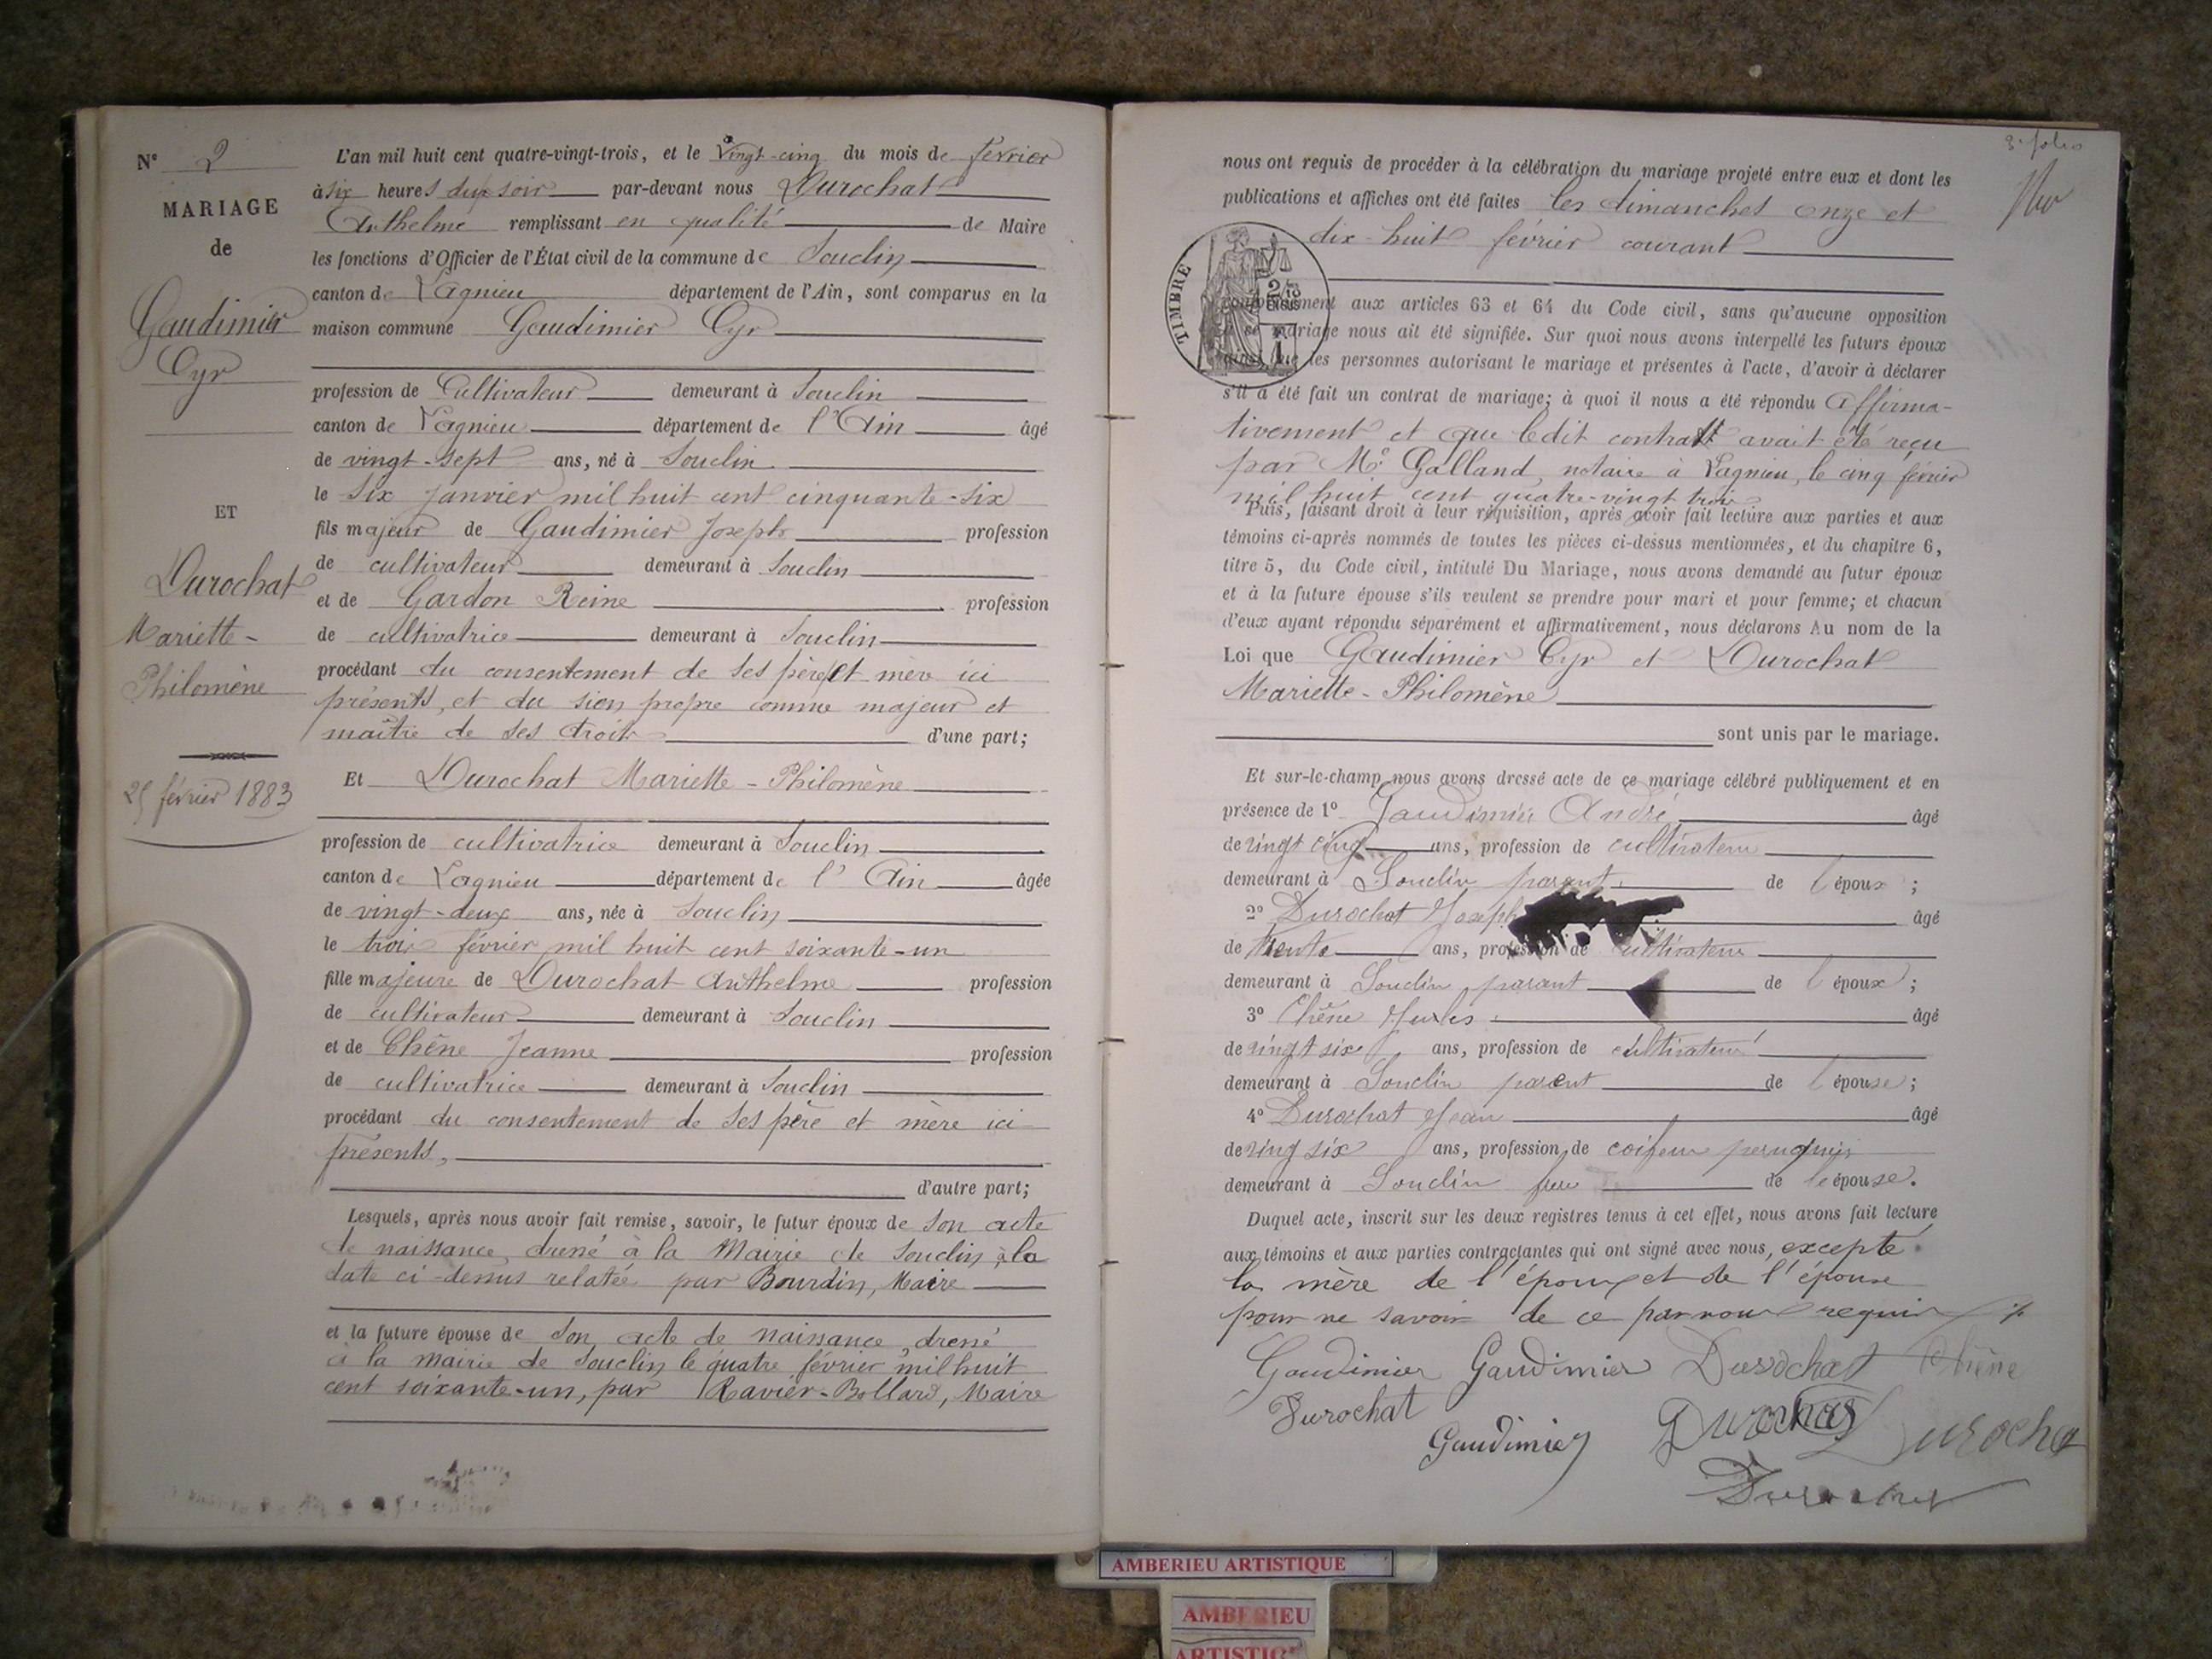 N° 2
MARIAGE
de
Gaudimier
Cyr
ET
Durochat
Mariette-
Philomène
25 février 1883
L'an mil huit cent quatre-vingt-trois, et le vingt-cinq du mois de février
à six heures du soir par-devant nous Durochat
Anthelme remplissant en qualité de Maire
les fonctions d'Officier de l'État civil de la commune de Souclin
canton de Lagnieu département de l'Ain, sont comparus en la
maison commune Gaudimier Cyr
profession de Cultivateur demeurant à Souclin
canton de Lagnieu département de l'Ain âgé
de vingt-sept ans, né à Souclin
le six janvier mil huit cent cinquante-six
fils majeur de Gaudimier Joseph profession
de cultivateur demeurant à Souclin
et de Gardon Reine profession
de cultivatrice demeurant à Souclin
procédant du consentement de ses père et mère ici
présents, et du sien propre comme majeur et
maître de ses droits d'une part;
Et Durochat Mariette-Philomène
profession de cultivatrice demeurant à Souclin
canton de Lagnieu département de l'Ain âgée
de vingt-deux ans, née à Souclin
le trois février mil huit cent soixante-un
fille majeure de Durochat Anthelme profession
de cultivateur demeurant à Souclin
et de Chêne Jeanne profession
de cultivatrice demeurant à Souclin
procédant du consentement de ses père et mère ici
présents,
d'autre part;
Lesquels, après nous avoir fait remise, savoir, le futur époux de son acte
de naissance, dressé à la Mairie de Souclin, à la
date ci-dessus relatée par Bourdin, Maire
et la future épouse de son acte de naissance, dressé
à la mairie de Souclin, le quatre février mil huit
cent soixante-un, par Ravier-Bollard, Maire
3e folio
nous ont requis de procéder à la célébration du mariage projeté entre eux et dont les
publications et affiches ont été faites les dimanches onze et
dix-huit février courant
TIMBRE
conformément aux articles 63 et 64 du Code civil, sans qu'aucune opposition
à se mariage nous ait été signifiée. Sur quoi nous avons interpellé les futurs époux
ainsi que les personnes autorisant le mariage et présentes à l'acte, d'avoir à déclarer
s'il a été fait un contrat de mariage; à quoi il nous a été répondu Affirma-
tivement et que ledit contrat avait été reçu
par Me Galland, notaire à Lagnieu, le cinq février
mil huit cent quatre-vingt trois
Puis, faisant droit à leur réquisition, après avoir fait lecture aux parties et aux
témoins ci-après nommés de toutes les pièces ci-dessus mentionnées, et du chapitre 6,
titre 5, du Code civil, intitulé Du Mariage, nous avons demandé au futur époux
et à la future épouse s'ils veulent se prendre pour mari et pour femme; et chacun
d'eux ayant répondu séparément et affirmativement, nous déclarons Au nom de la
Loi que Gaudimier Cyr et Durochat
Mariette-Philomène
sont unis par le mariage.
Et sur-le-champ nous avons dressé acte de ce mariage célébré publiquement et en
présence de 1° Gaudimier André âgé
de vingt cinq ans, profession de cultivateur
demeurant à Souclin parant de l'époux;
2° Durochat Joseph âgé
de trente ans, profession de cultivateur
demeurant à Souclin parant de l'époux;
3° Chêne Jules âgé
de vingt six ans, profession de cultivateur
demeurant à Souclin parent de l'épouse;
4° Durochat Jean âgé
de ving six ans, profession de coifeur peruquier
demeurant à Souclin frere de l'épouse.
Duquel acte, inscrit sur les deux registres tenus à cet effet, nous avons fait lecture
aux témoins et aux parties contractantes qui ont signé avec nous, excepté
la mère de l'époux et de l'épouse
pour ne savoir de ce par nous requis
Gaudimier Gaudimier Durochat Chêne
Durochat Durochat Durochat
Gaudimier
Durochat
AMBERIEU ARTISTIQUE
AMBERIEU
ARTISTIQUE